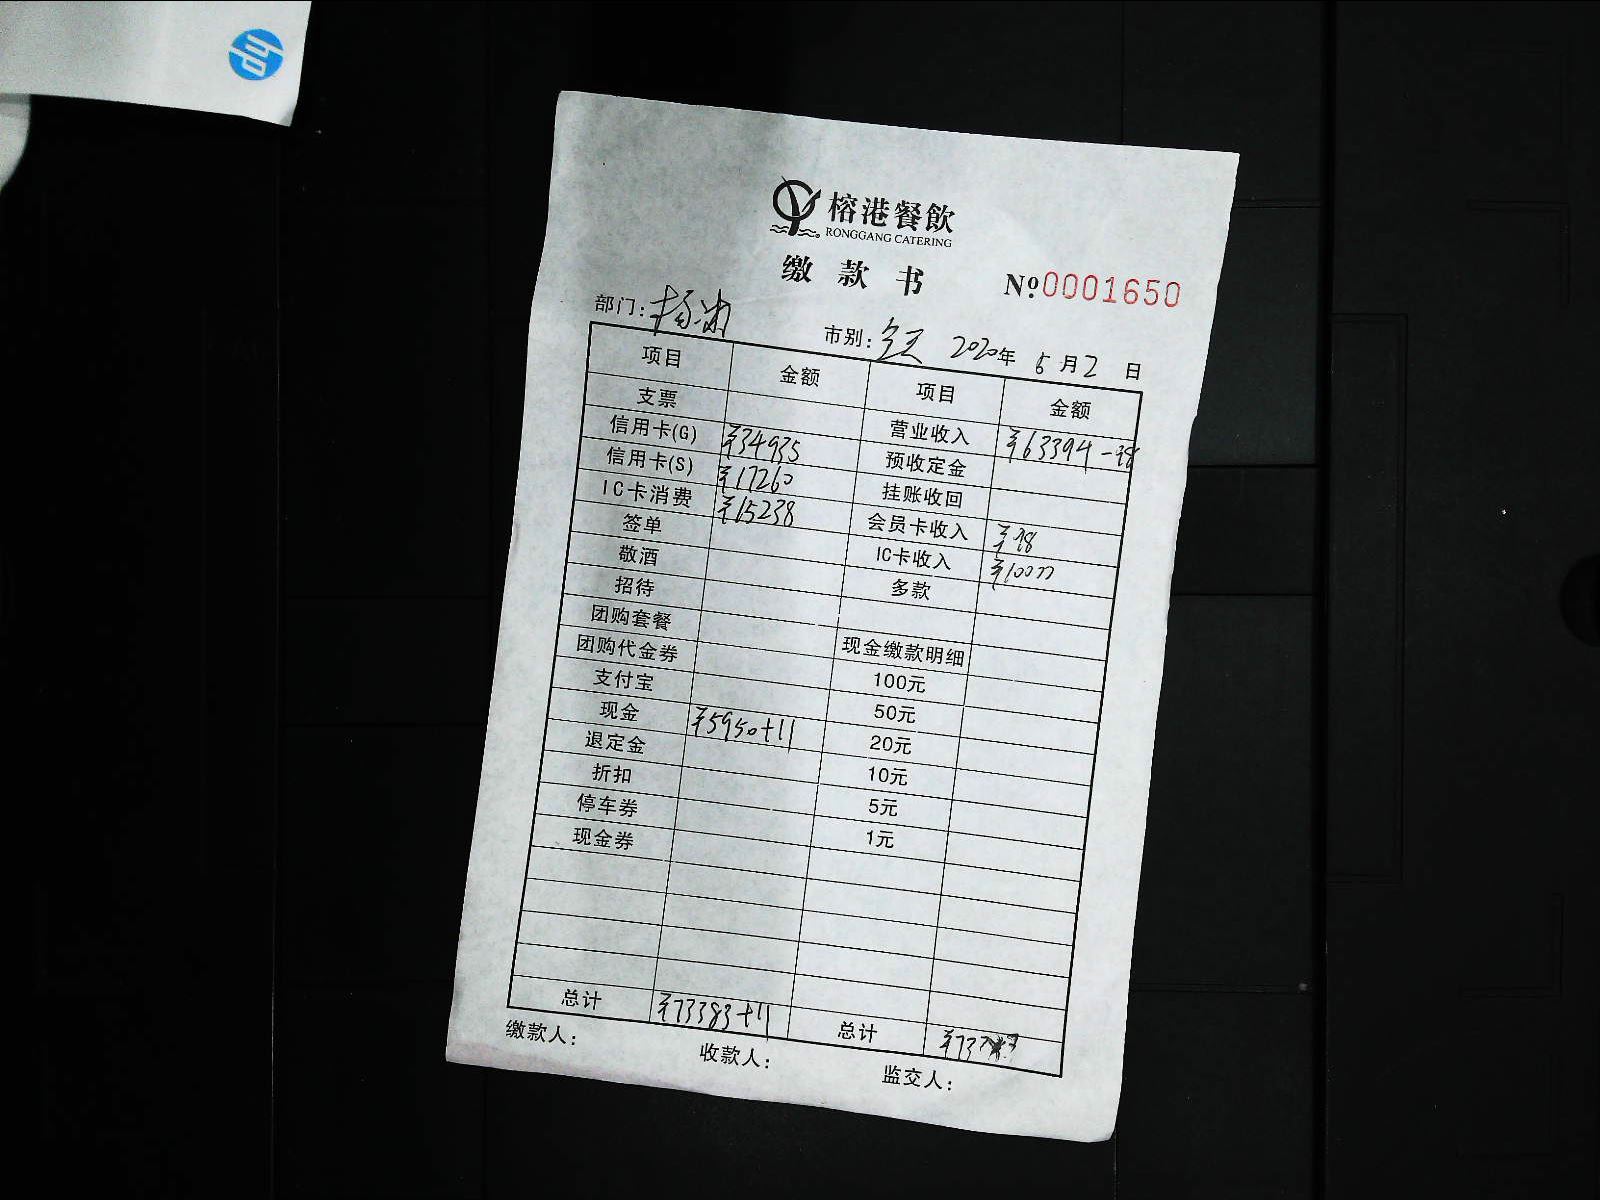 hp
榕港餐飲
RONGGANG CATERING
缴款书 №0001650
部门: 市别: 全天 2020年 5月2日
项目 金额 项目 金额
支票 营业收入 ¥63394-98
信用卡(G) ¥34935 预收定金
信用卡(S) ¥17260 挂账收回
IC卡消费 ¥15238 会员卡收入 ¥98
签单 IC卡收入 ¥10000
敬酒 多款
招待
团购套餐 现金缴款明细
团购代金券 100元
支付宝 50元
现金 ¥5950+11 20元
退定金 10元
折扣 5元
停车券 1元
现金券
总计 ¥73383+11 总计
缴款人: 收款人: 监交人: